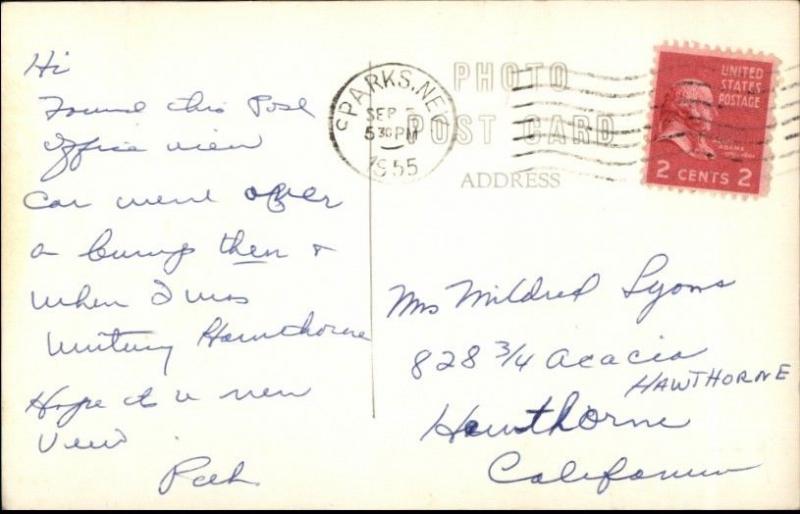 Hi
Found this Post
Office view
Car went over
a bump then &
when I was
writing Hawthorne
Hope it's a new
View.
SPARKS, NEV
SEP
5 30 PM
1955
PHOTO
POST CARD
ADDRESS
UNITED
STATES
POSTAGE
ADAMS
2 CENTS 2
Mrs Mildred Lyons
828 3/4 Acacia
HAWTHORNE
Hawthorne
California